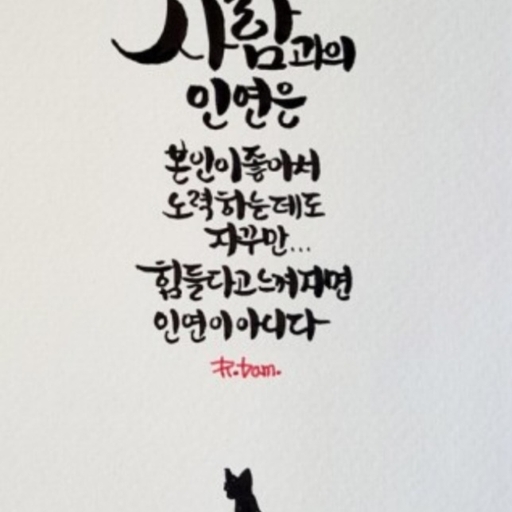 사람과의
인연은
본인이좋아서
노력하는데도
자꾸만...
힘들다고느껴지면
인연이아니다